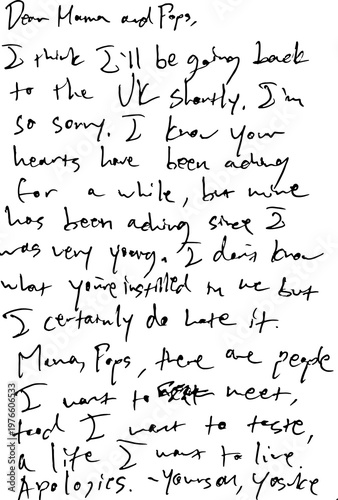 Dear Mama and Pops,
I think I'll be going back
to the UK shortly. I'm
so sorry. I know your
hearts have been aching
for a while, but mine
has been aching since I
was very young. I don't know
what you've instilled in me but
I certainly do hate it.
Mama, Pops, there are people
I want to meet,
food I want to taste,
a life I want to live.
Apologies. - Your son, Yosuke
Adobe Stock | #1976606533